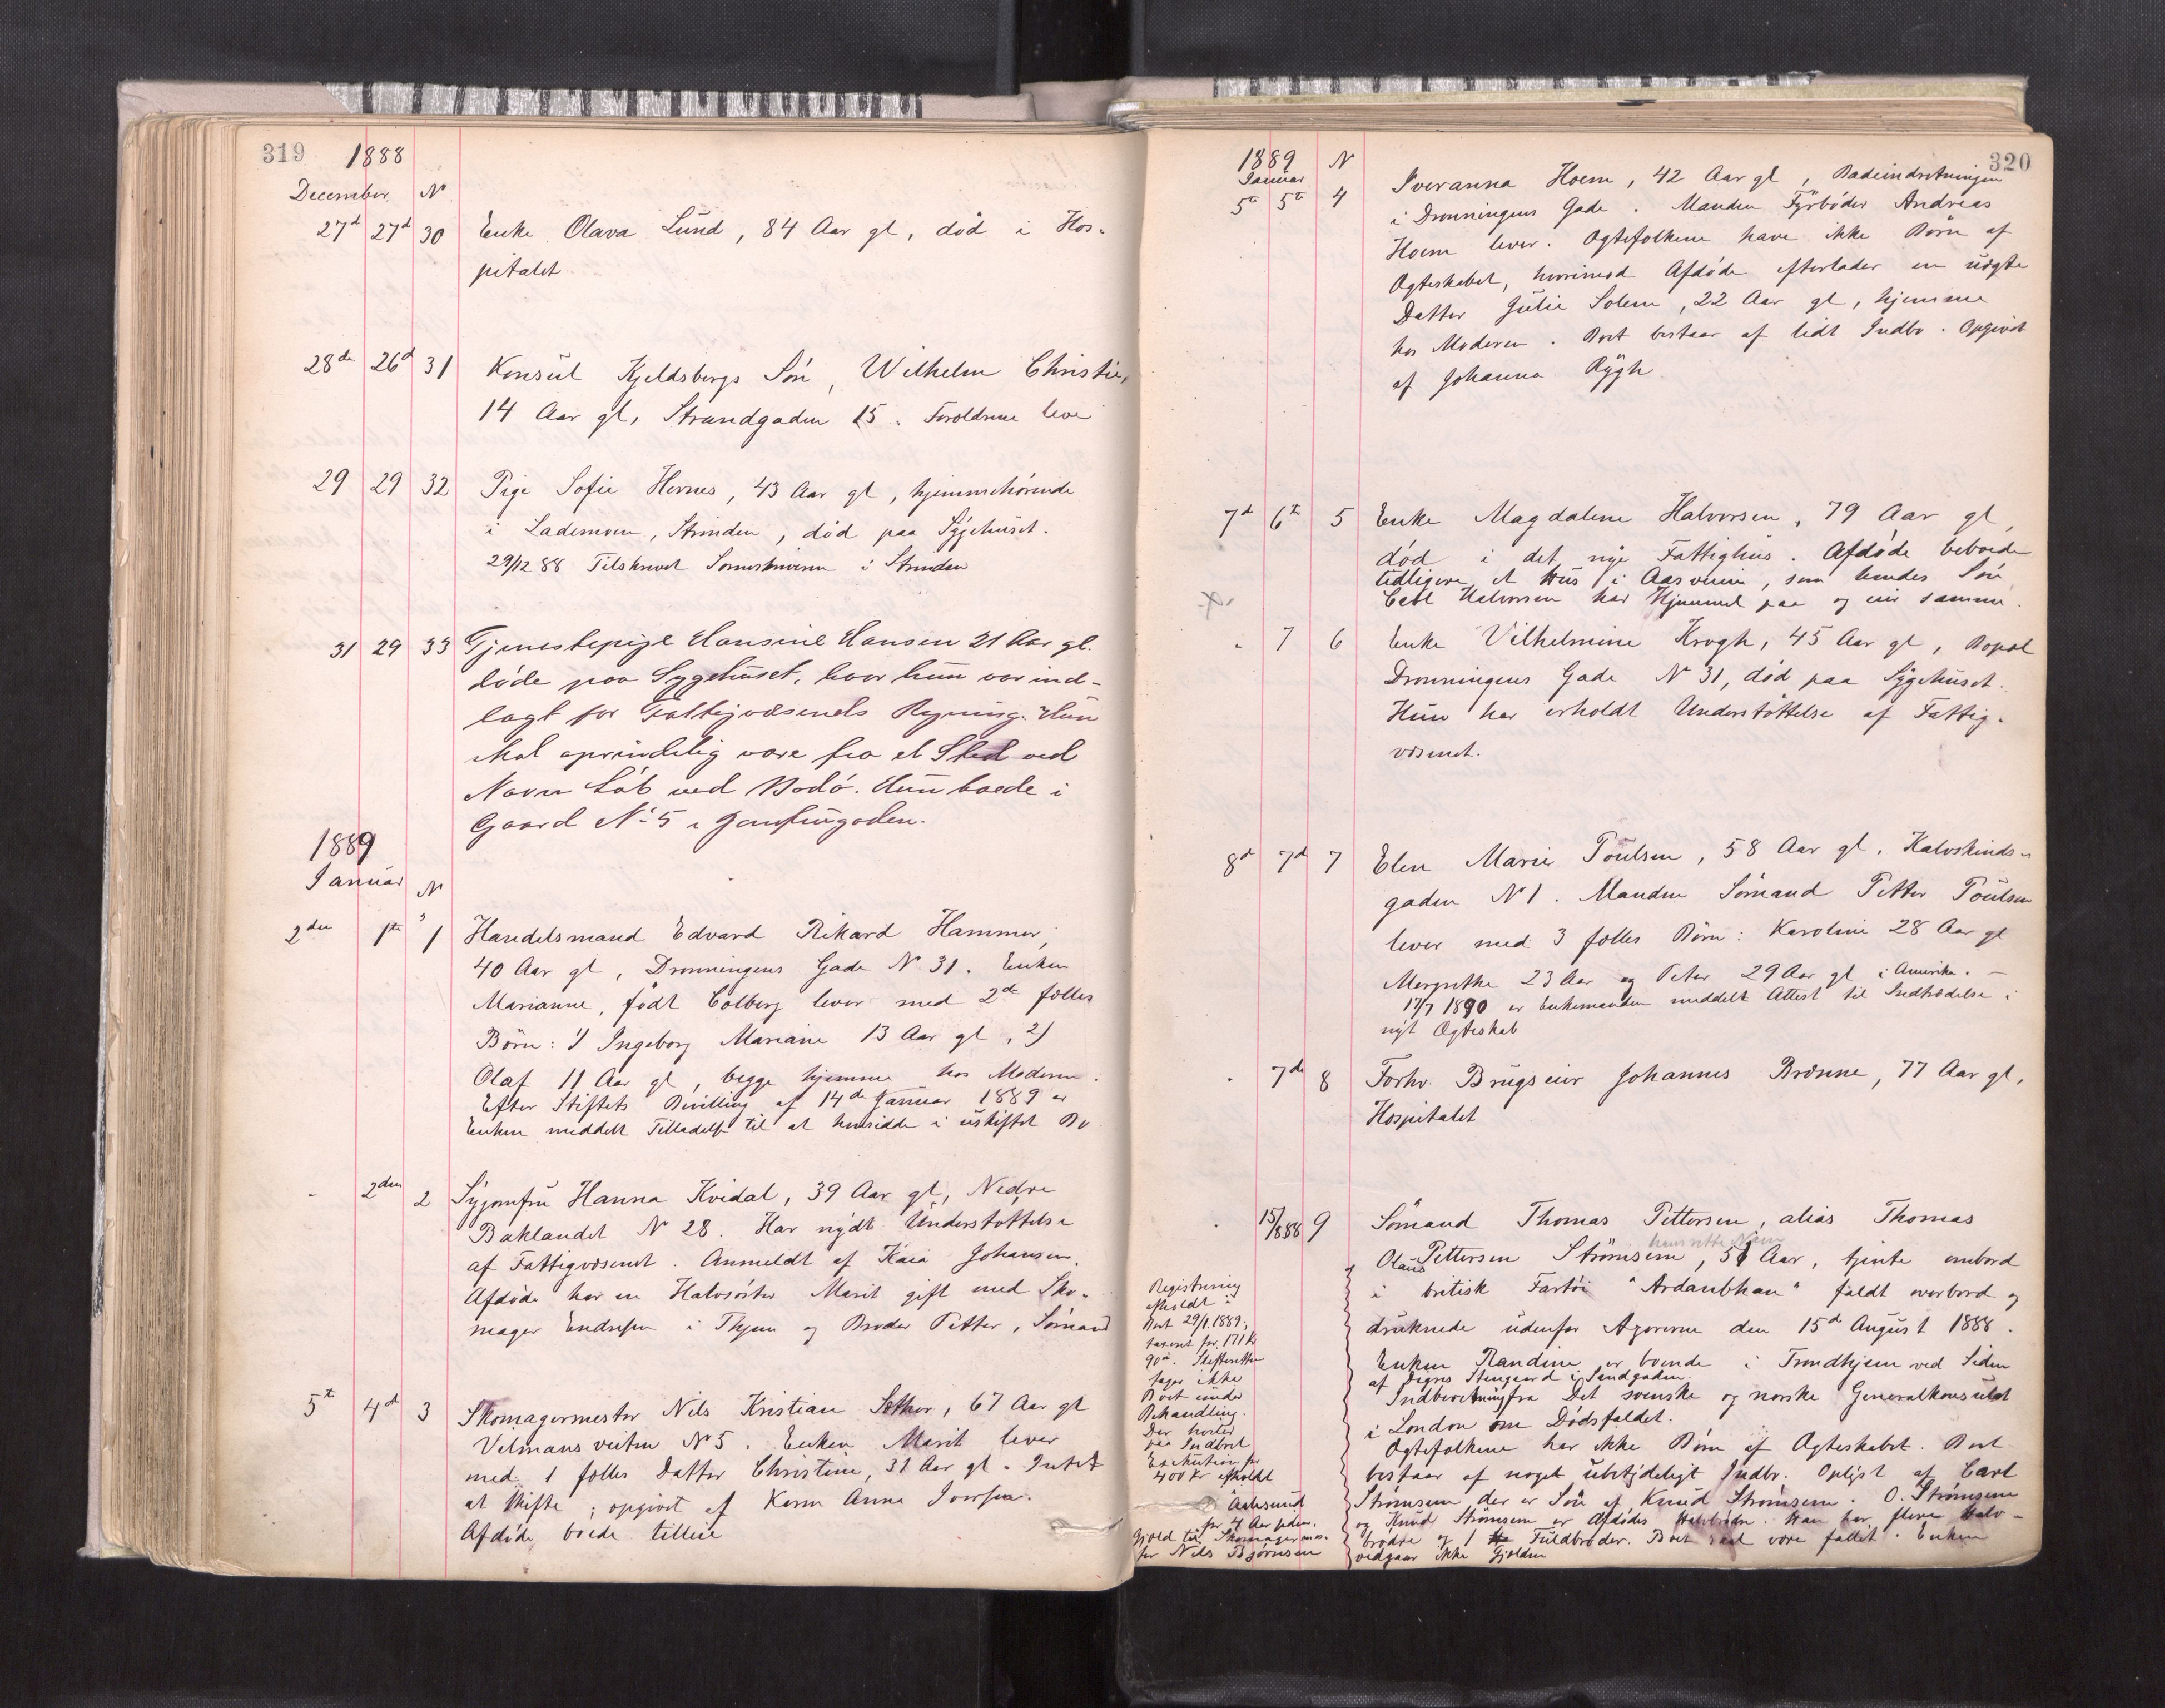 319 1888
December N
27d 27d 30 Enke Olava Lund, 84 Aar gl, död i Hos-
pitalet
28de 26d 31 Konsul Kjeldsbergs Sön, Wilhelm Christie,
14 Aar gl, Strandgaden 15. Forældrene leve
29 29 32 Pige Sofie Hernes, 43 Aar gl, hjemmehörende
i Lademoen, Strinden, död paa Sygehuset.
29/12 88 Tilskrevet Sorenskriveren i Strinden
31 29 33 Tjenestepige Hansine Hansen 21 Aar gl.
döde paa Sygehuset, hvor hun var ind-
lagt for Fattigvæsenets Regning. Hun
skal oprindelig være fra et Sted ved
Navn Löb ved Bodö. Hun boede i
Gaard No 5 i Jomfrugaden.
1889
Januar N
2den 1ste 1 Handelsmand Edvard Rikard Hammer,
40 Aar gl, Dronningens Gade N 31. Enken
Marianne, født Colberg lever med 2de fælles
Börn: 1) Ingeborg Mariane 13 Aar gl, 2)
Olaf 11 Aar gl, begge hjemme hos Moderen.
Efter Stiftets Bevilling af 14de Januar 1889 er
Enken meddelt Tilladelse til at hensidde i uskiftet Bo
- 2den 2 Syjomfru Hanna Kvidal, 39 Aar gl, Nedre
Baklandet N 28. Har nydt Understøttelse
af Fattigvæsenet. Anmeldt af Kaia Johansen.
Afdöde har en Halvsöster Marit gift med Sko-
mager Endresen i Thjem og Broder Petter, Sömand
5t 4d 3 Skomagermester Nils Kristian Sæther, 67 Aar gl
Velmans veiten No 5. Enken Marit lever
med 1 fælles Datter Christine, 31 Aar gl. Intet
at skifte; opgivet af Karen Anna Iversen.
Afdöde boede tilleie
320
1889 N
Januar
5te 5te 4 Iveranna Hoem, 42 Aar gl, Badeindretningen
i Dronningens Gade. Manden Fyrböder Andreas
Hoem lever. Ægtefolkene have ikke Börn af
Ægteskabet, hvorimod Afdöde efterlader en uægte
Datter Julie Solem, 22 Aar gl, hjemme
hos Moderen. Boet bestaar af lidt Indbo. Opgivet
af Johanna Rygh
7d 6te 5 Enke Magdalene Halvorsen, 79 Aar gl,
död i det nye Fattighus. Afdöde beboede
tidligere et Hus i Aasveien, som hendes Sön
Carl Halvorsen har Hjemmel paa og eier samme.
- 7 6 Enke Vilhelmine Krogh, 45 Aar gl, Bopæl
Dronningens Gade N 31, död paa Sygehuset.
Hun har erholdt Understöttelse af Fattig-
væsenet.
8d 7d 7 Elen Marie Poulsen, 58 Aar gl, Kalvskinds-
gaden N 1. Manden Sömand Petter Poulsen
lever med 3 fælles Börn: Karoline 28 Aar gl
Margrethe 23 Aar og Peter 29 Aar gl i Amerika. -
17/7 1890 er Enkemanden meddelt Attest til Indtrædelse i
nyt Ægteskab
- 7de 8 Forhv. Brugseier Johannes Brænne, 77 Aar gl,
Hospitalet
- 15/8 88 9 Sömand Thomas Pettersen, alias Thomas
hans rette Navn
Olaus Pettersen Strömsem, 51 Aar, tjente ombord
i britisk Fartöi "Ardanbhan" faldt overbord og
druknede udenfor Azorerne den 15d August 1888.
Enken Randine er boende i Trondhjem ved Siden
af Digres Stengaard i Sandgaden.
Indberetning fra Det svenske og norske Generalkonsulat
i London om Dödsfaldet.
Ægtefolkene har ikke Börn af Ægteskabet. Boet
bestaar af noget ubetydeligt Indbo. Oplyst af Carl
Strömsem, der er Sön af Knud Strömsem. O. Strömsem
og Knud Strömsem er Afdödes Halvbrödre. Han har flere Halv-
brödre og 1 Fuldbroder. Boet skal være fallit. Enken
vedgaar ikke Gjælden
Registrering
afholdt i
Boet 29/1 1889,
taxeret for 171 Kr
90 ö. Skifteretten
tager ikke
Boet under
Behandling.
Der hviler
paa Indboet
Exekution for
400 Kr afholdt
i Aalesund
for 4 Aar siden.
Gjæld til Skomagermes-
ter Nils Bjørnsen